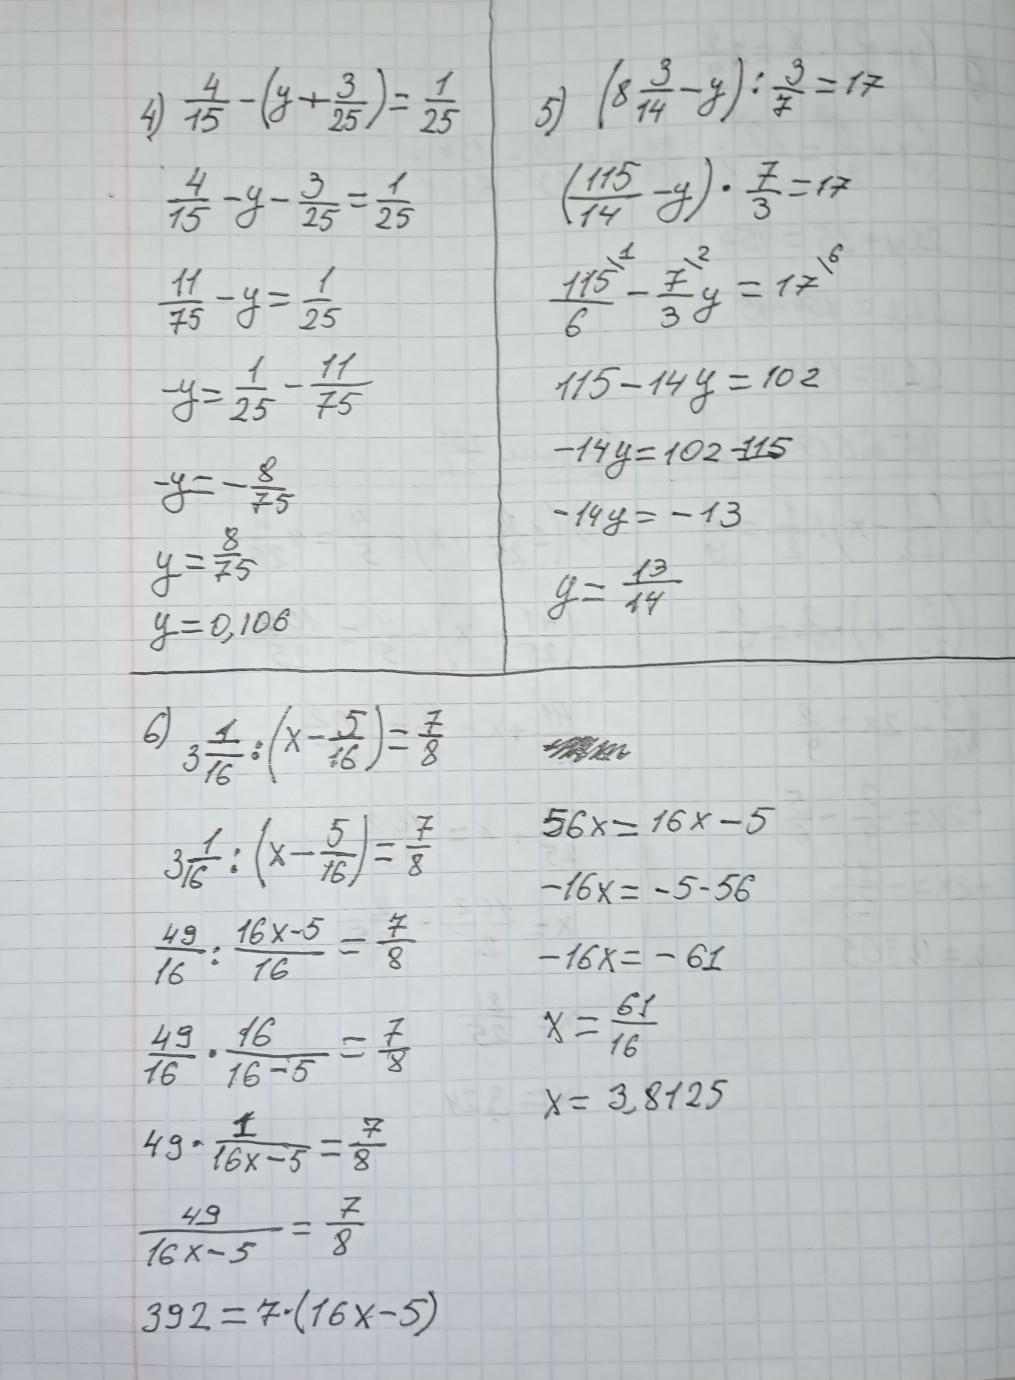 4) 4/15 - (y + 3/25) = 1/25
4/15 - y - 3/25 = 1/25
11/75 - y = 1/25
-y = 1/25 - 11/75
-y = - 8/75
y = 8/75
y = 0,106
5) (8 3/14 - y) : 3/7 = 17
(115/14 - y) · 7/3 = 17
115/6 \1 - 7/3 \2 y = 17 \6
115 - 14y = 102
-14y = 102 - 115
-14y = -13
y = 13/14
6) 3 1/16 : (x - 5/16) = 7/8
3 1/16 : (x - 5/16) = 7/8
49/16 : 16x-5/16 = 7/8
49/16 · 16/16-5 = 7/8
49 · 1/16x-5 = 7/8
49/16x-5 = 7/8
392 = 7·(16x-5)
56x = 16x - 5
-16x = -5-56
-16x = -61
x = 61/16
x = 3,8125